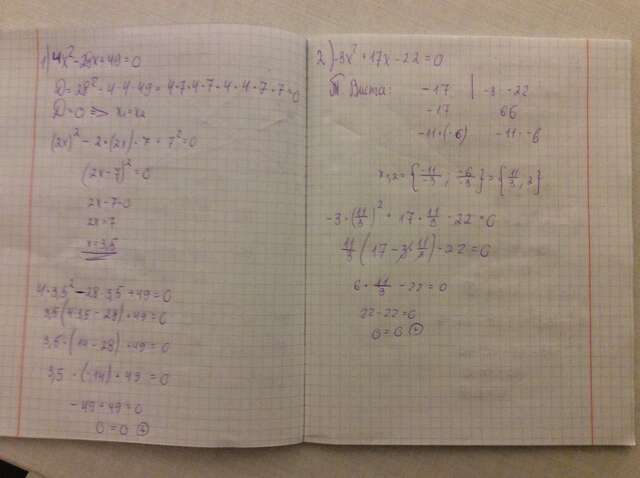 1) 4x² - 28x + 49 = 0
D = 28² - 4 · 4 · 49 = 4·7·4·7 - 4·4·7·7 = 0
D = 0 => x₁ = x₂
(2x)² - 2·(2x)·7 + 7² = 0
(2x - 7)² = 0
2x - 7 = 0
2x = 7
x = 3,5
4·3,5² - 28·3,5 + 49 = 0
3,5(4·3,5 - 28) + 49 = 0
3,5·(14 - 28) + 49 = 0
3,5 · (-14) + 49 = 0
-49 + 49 = 0
0 = 0 +
2) -3x² + 17x - 22 = 0
Т. Виета: -17 | -3 · -22
-17 66
-11+(-6) -11 · -6
x₁,₂ = {-11/-3 ; -6/-3} = {11/3, 2}
-3·(11/3)² + 17·11/3 - 22 = 0
11/3 (17 - 3·11/3) - 22 = 0
6 · 11/3 - 22 = 0
22 - 22 = 0
0 = 0 +